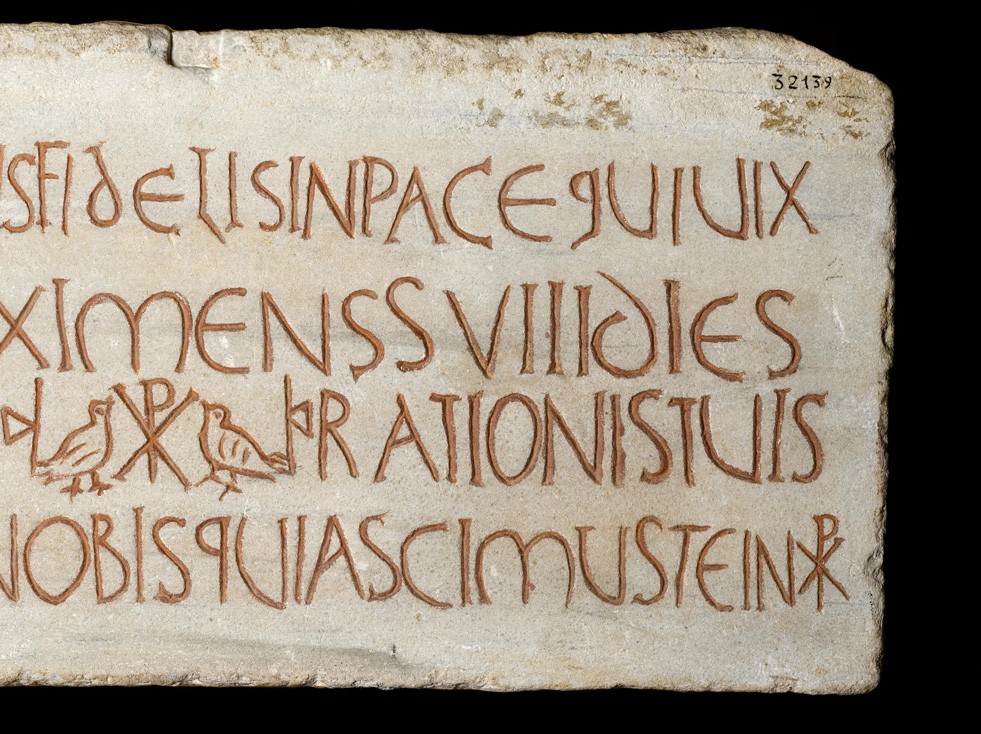 32139
USFIDELISINPACEQUIUIX
XIMENSSVIIIDIES
☧ RATIONISTUIS
NOBISQUIASCIMUSTEIN☧